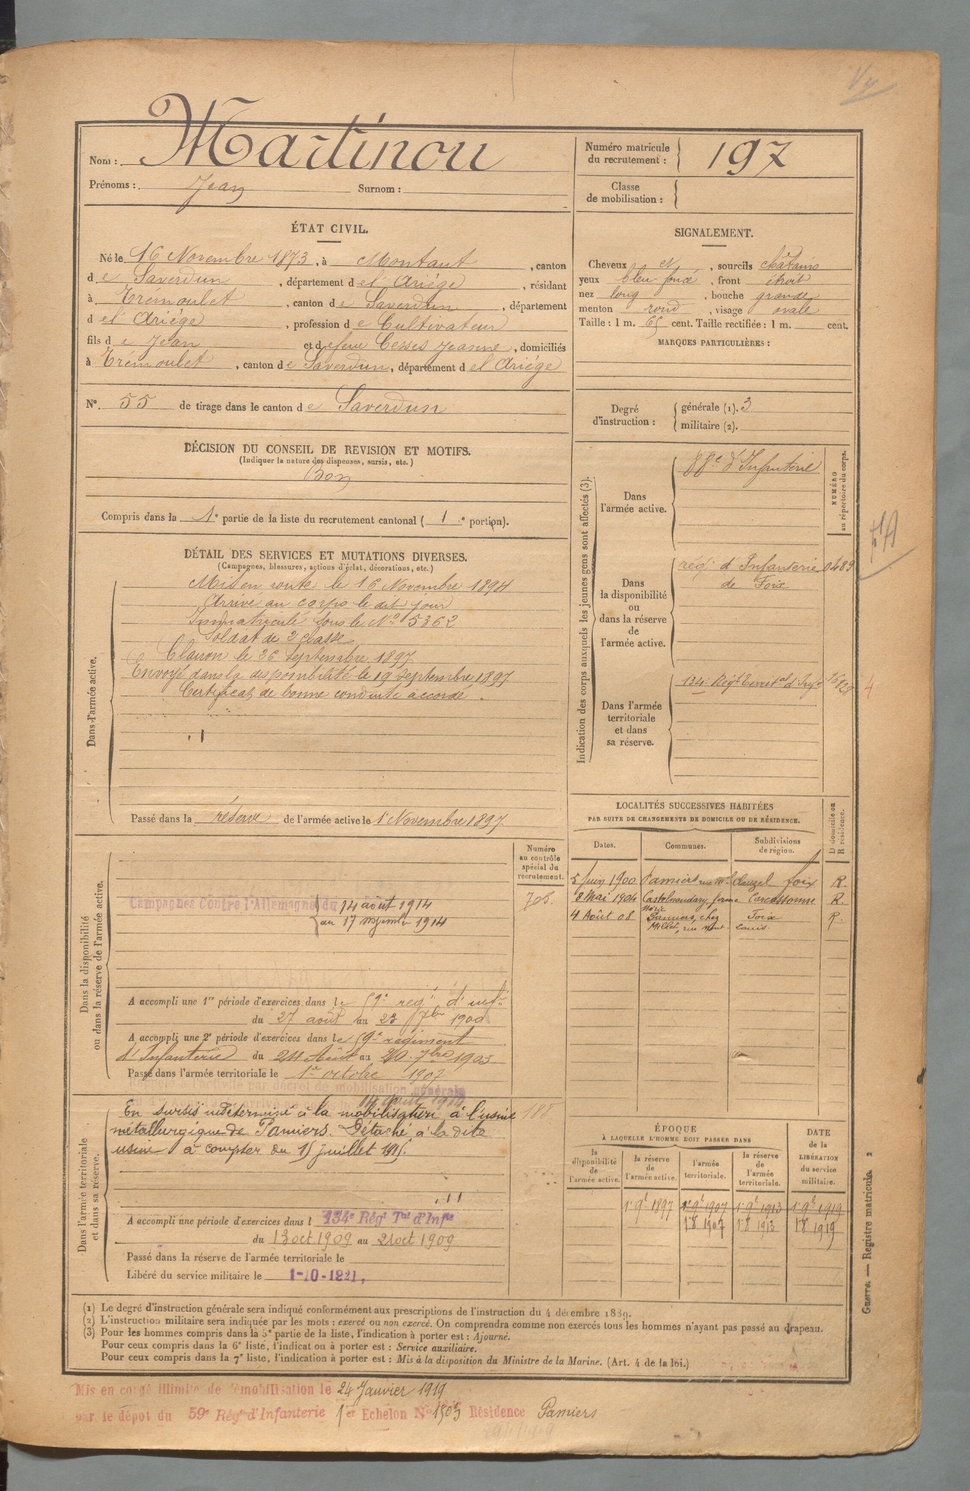 Nom : Martinou
Prénoms : Jean Surnom :
Numéro matricule du recrutement : 197
Classe de mobilisation :
ÉTAT CIVIL.
Né le 16 Novembre 1873, à Montaut, canton
de Saverdun, département de l'Ariège, résidant
à Trémoulet, canton de Saverdun, département
de l'Ariège, profession de Cultivateur
fils de Jean et de feue Cesses Jeanne, domiciliés
à Trémoulet, canton de Saverdun, département de l'Ariège
N° 55 de tirage dans le canton de Saverdun
SIGNALEMENT.
Cheveux et, sourcils châtains
yeux bleu foncé, front étroit
nez long, bouche grande
menton rond, visage ovale
Taille : 1 m. 65 cent. Taille rectifiée : 1 m. cent.
MARQUES PARTICULIÈRES :
Degré d'instruction : générale (1). 3
militaire (2).
DÉCISION DU CONSEIL DE REVISION ET MOTIFS.
(Indiquer la nature des dispenses, sursis, etc.)
Bon
Compris dans la 1e partie de la liste du recrutement cantonal ( 1 e portion).
DÉTAIL DES SERVICES ET MUTATIONS DIVERSES.
(Campagnes, blessures, actions d'éclat, décorations, etc.)
Dans l'armée active.
Mis en route le 16 Novembre 1894
Arrivé au corps le dit jour
Immatriculé sous le N° 5362
Soldat de 2e classe
Clairon le 26 septembre 1897
Envoyé dans la disponibilité le 19 Septembre 1897
Certificat de bonne conduite accordé.
Passé dans la réserve de l'armée active le 1 Novembre 1897
Indication des corps auxquels les jeunes gens sont affectés (3).
NUMÉRO au répertoire du corps.
Dans l'armée active.
88e d'Infanterie
Dans la disponibilité ou dans la réserve de l'armée active.
rég.t d'Infanterie 0489
de Foix
Dans l'armée territoriale et dans sa réserve.
134 Régt Territal d'Infie
4
LOCALITÉS SUCCESSIVES HABITÉES
PAR SUITE DE CHANGEMENTS DE DOMICILE OU DE RÉSIDENCE.
Dates. Communes. Subdivisions de région. D domicile ou R résidence.
5 Juin 1900 Pamiers Foix R.
8 Mai 1904 Castelnaudary, ferme Carcassonne R.
4 Août 08 Pamiers, chez Foix R.
Dans la disponibilité ou dans la réserve de l'armée active.
Numéro au contrôle spécial du recrutement.
706.
Campagnes Contre l'Allemagne du 14 août 1914
au 17 novembre 1914
A accompli une 1re période d'exercices dans le 59e régt d'infie
du 27 août au 23 7bre 1900
A accompli une 2e période d'exercices dans le 59e régiment
d'Infanterie du 24 Août au 20 7bre 1903
Passé dans l'armée territoriale le 1er octobre 1907
Dans l'armée territoriale et dans sa réserve.
En sursis indéterminé à la mobilisation à l'usine
métallurgique de Pamiers. Détaché à la dite
usine à compter du 15 juillet 1915.
188
A accompli une période d'exercices dans l 134e Régt Tal d'Infie
du 13 oct 1909 au 21 oct 1909
Passé dans la réserve de l'armée territoriale le
Libéré du service militaire le 1-10-1921.
ÉPOQUE
A LAQUELLE L'HOMME DOIT PASSER DANS
la disponibilité de l'armée active. la réserve de l'armée active. l'armée territoriale. la réserve de l'armée territoriale. DATE de la LIBÉRATION du service militaire.
1er 9e 1897 1er 9e 1907 1er 9e 1913 1er 9e 1919
1er 8 1907 1er 8 1913 1er 8 1919
Guerre. — Registre matricule. 2
(1) Le degré d'instruction générale sera indiqué conformément aux prescriptions de l'instruction du 4 décembre 1889.
(2) L'instruction militaire sera indiquée par les mots : exercé ou non exercé. On comprendra comme non exercés tous les hommes n'ayant pas passé au drapeau.
(3) Pour les hommes compris dans la 5e partie de la liste, l'indication à porter est : Ajourné.
Pour ceux compris dans la 6e liste, l'indication à porter est : Service auxiliaire.
Pour ceux compris dans la 7e liste, l'indication à porter est : Mis à la disposition du Ministre de la Marine. (Art. 4 de la loi.)
Mis en congé illimité de démobilisation le 24 Janvier 1919
par le dépôt du 59e Régt d'Infanterie 1er Echelon N° 1503 Résidence Pamiers